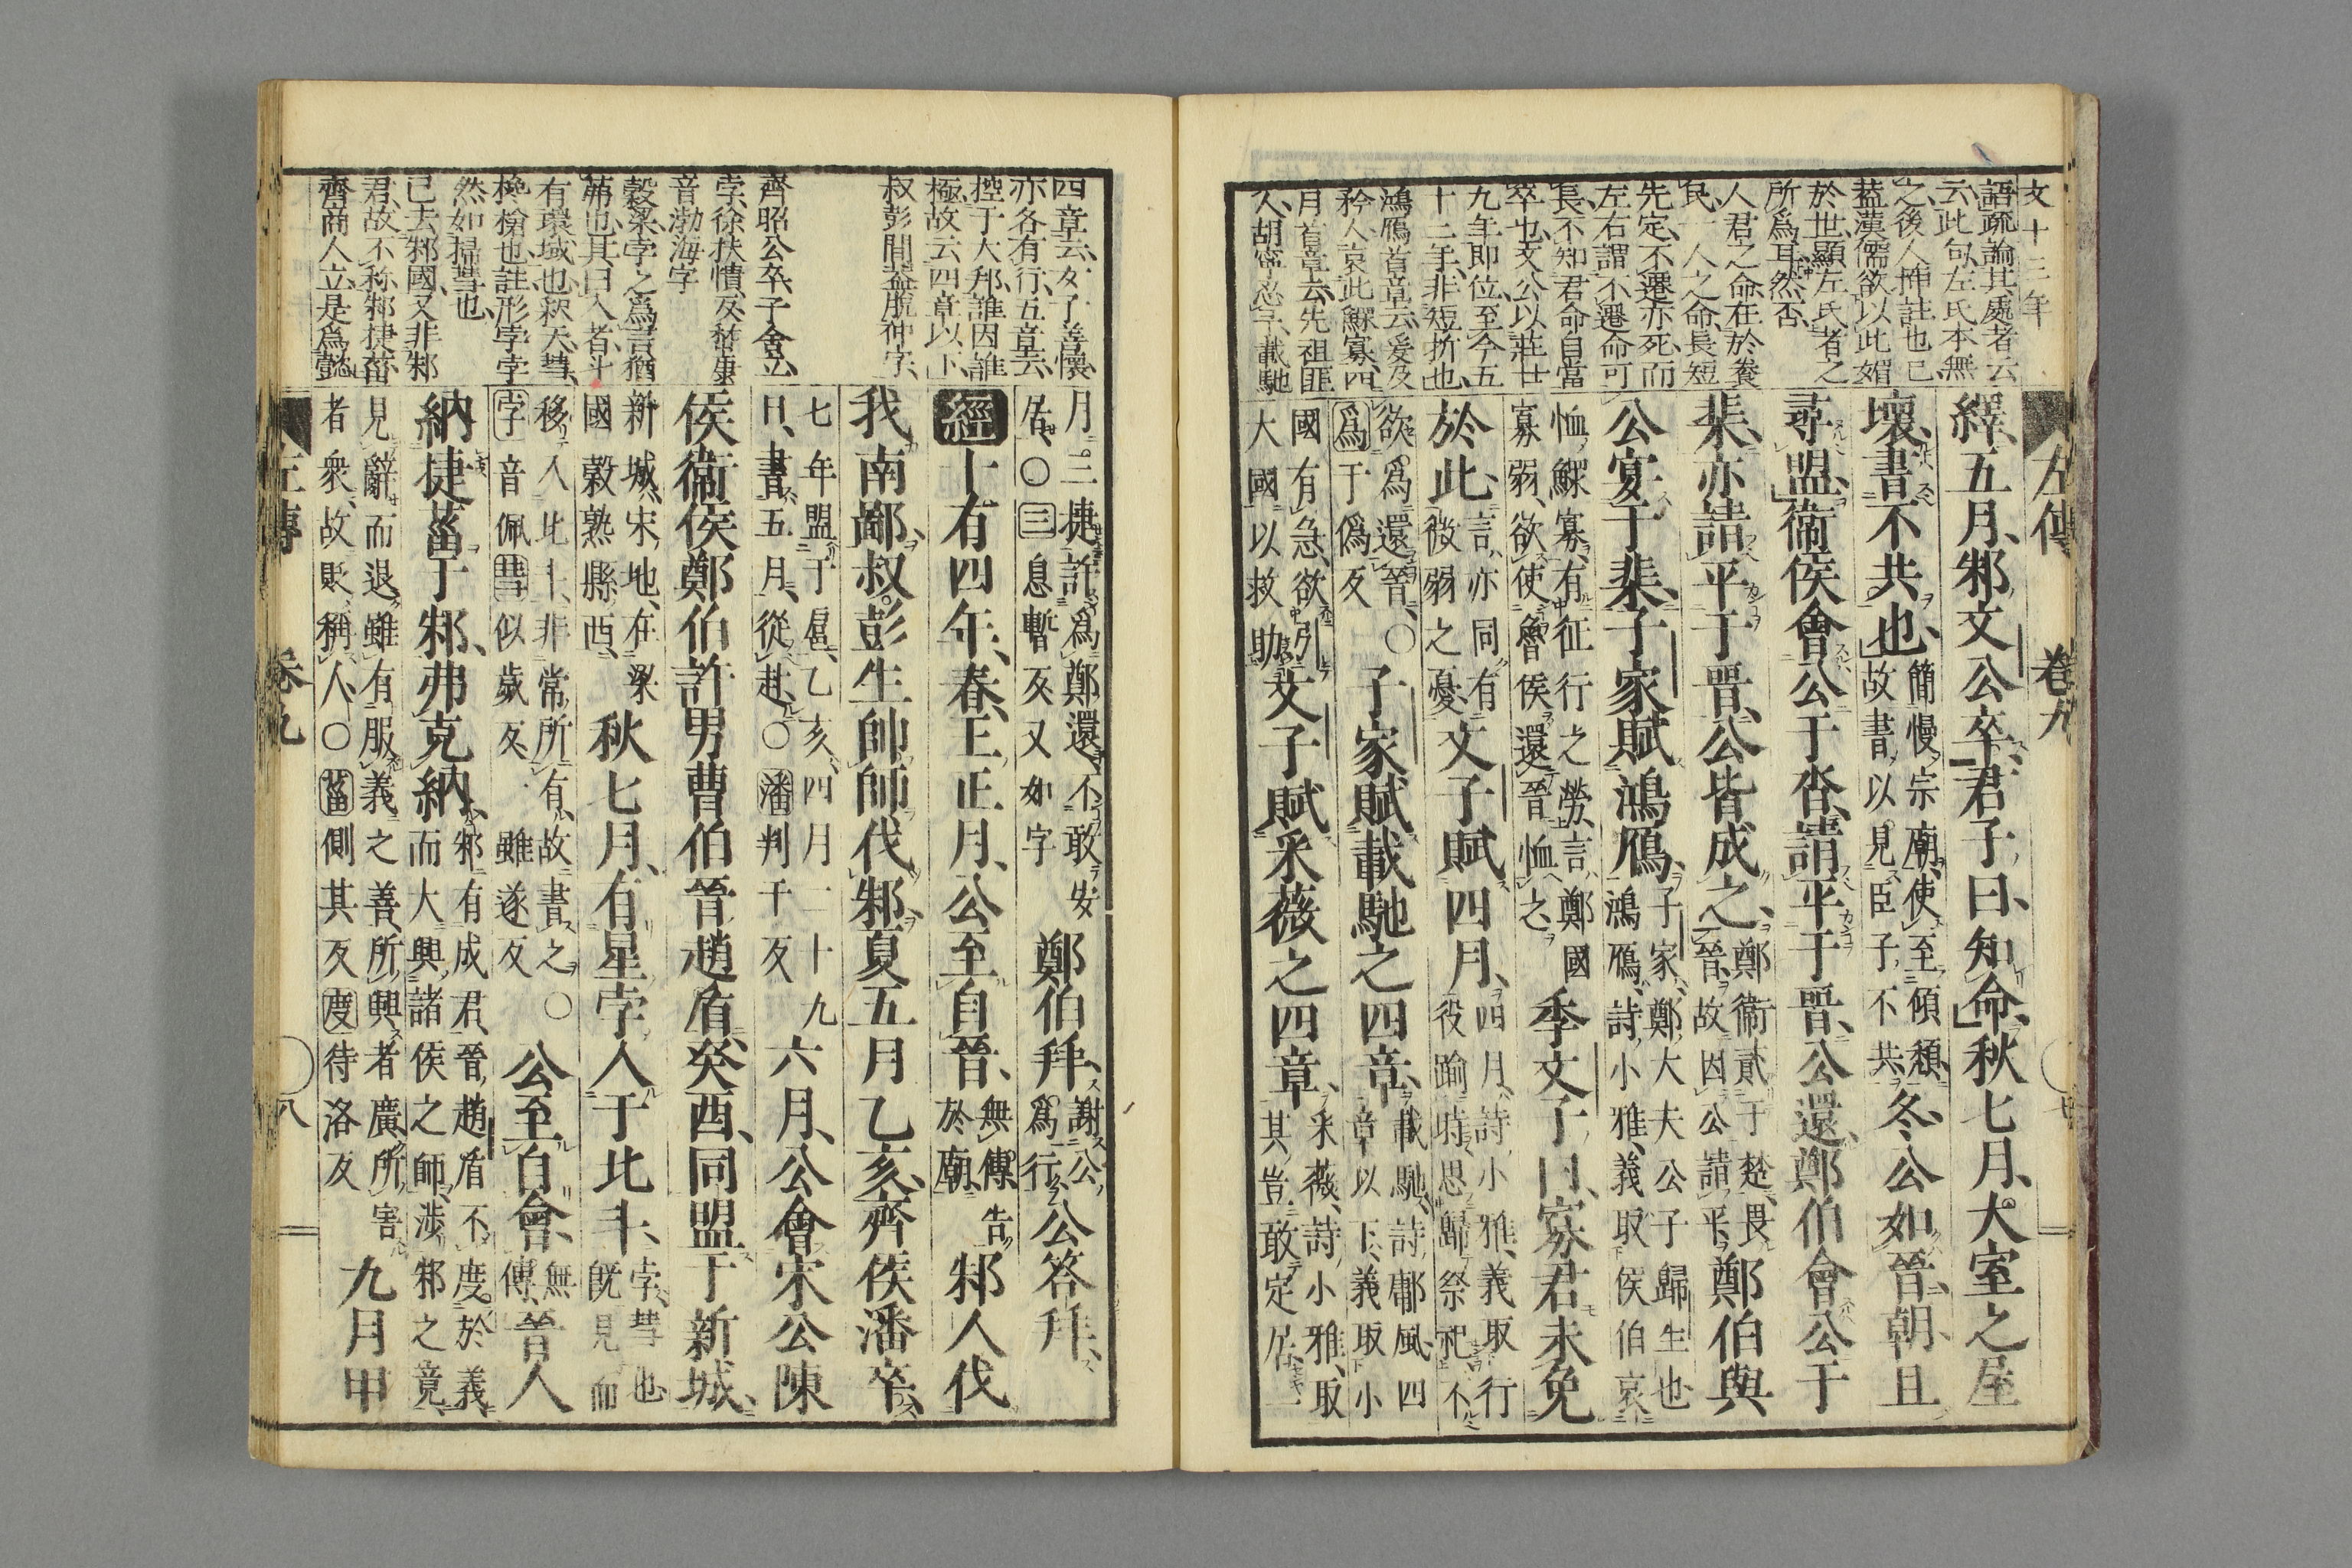 文十三年
語疏論其處者云
云此句左氏本無
之後人挿註也已
蓋漢儒欲以此媚
於世顯左氏者之
所爲耳然否
人君之命在於養
民一人之命長短
先定不遷亦死而
左右謂不遷命可
長不知君命自當
卒也文公以莊廿
九年即位至今五
十二年非短折也
鴻鴈首章云爰及
矜人哀此鰥寡四
月首章云先祖匪
人胡寧忍予載馳
左傳 卷九 七
繹五月邾文公卒君子曰知命秋七月大室之屋
壞書不共也 簡慢宗廟使至傾頹 故書以見臣子不共 冬公如晉朝且
尋盟衞侯會公于沓請平于晉公還鄭伯會公于
棐亦請平于晉公皆成之 鄭衞貳于楚畏 晉故因公請平 鄭伯與
公宴于棐子家賦鴻鴈 子家鄭大夫公子歸生也 鴻鴈詩小雅義取侯伯哀
恤鰥寡有征行之勞言鄭國 寡弱欲使魯侯還晉恤之 季文子曰寡君未免
於此 言亦同有 微弱之憂 文子賦四月 四月詩小雅義取行 役踰時思歸祭祀不
欲爲還晉〇 爲于僞反 子家賦載馳之四章 載馳詩鄘風四 章以下義取小
國有急欲引 大國以救助 文子賦采薇之四章 采薇詩小雅取 其豈敢定居一
四章云女子善懷
亦各有行五章云
控于大邦誰因誰
極故云四章以下
叔彭間蓋脫仲字
齊昭公卒子舍立
孛徐扶憤反嵆康
音渤海字
穀梁孛之爲言猶
茀也其曰入者斗
有環域也釈天彗
欃槍也註形孛孛
然如掃彗也
已去邾國又非邾
君故不称邾捷菑
齊商人立是爲懿
月三捷許爲鄭還不敢安 居〇三息暫反又如字 鄭伯拜 謝公 爲行 公答拜
經十有四年春王正月公至自晉 無傳告 於廟 邾人伐
我南鄙叔彭生帥師伐邾夏五月乙亥齊侯潘卒
七年盟于扈乙亥四月二十九 日書五月從赴〇潘判干反 六月公會宋公陳
侯衞侯鄭伯許男曹伯晉趙盾癸酉同盟于新城
新城宋地在梁 國穀熟縣西 秋七月有星孛入于北斗 孛彗也 既見而
移入北斗非常所有故書之〇 孛音佩彗似歲反 雖遂反 公至自會 無 傳 晉人
納捷菑于邾弗克納 邾有成君晉趙盾不度於義 而大興諸侯之師涉邾之竟
見辭而退雖有服義之善所興者廣所害 者衆故貶稱人〇菑側其反度待洛反 九月甲
左傳 卷九 八